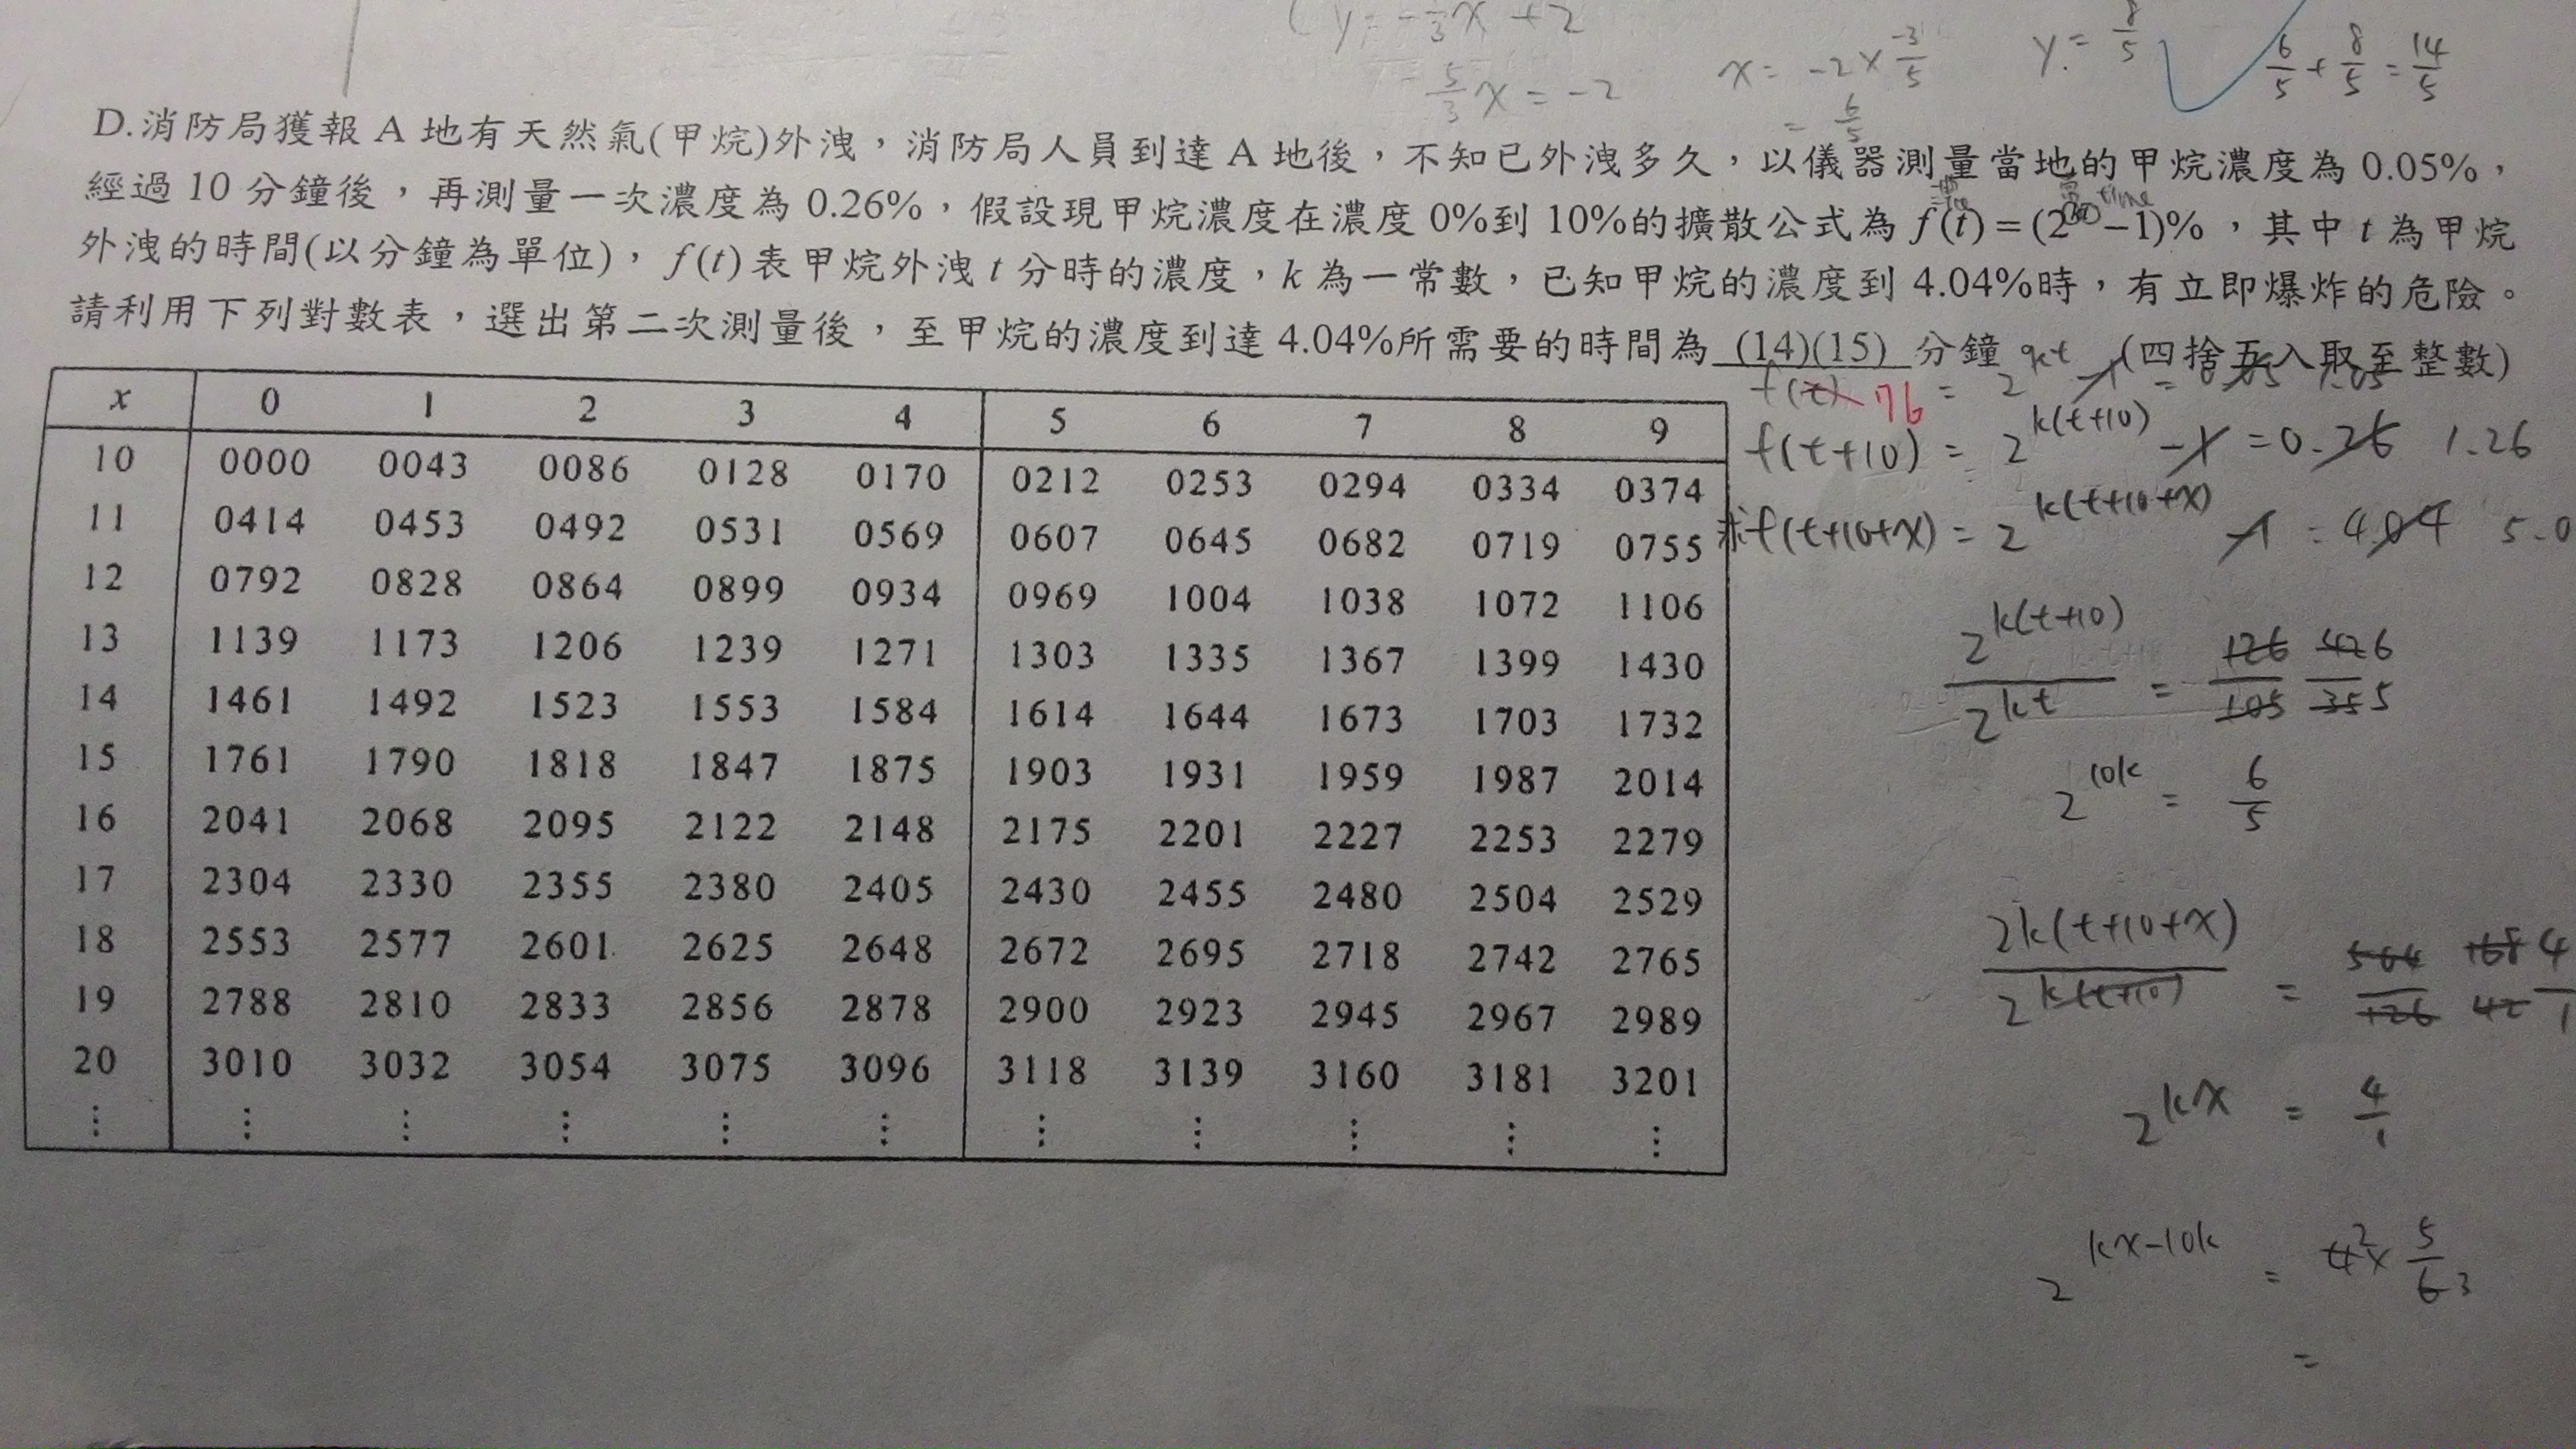 y = -1/3 x + 2
5/3 x = -2
x = -2 × -3/5
= 6/5
y = 8/5
6/5 + 8/5 = 14/5
D.消防局獲報 A 地有天然氣(甲烷)外洩，消防局人員到達 A 地後，不知已外洩多久，以儀器測量當地的甲烷濃度為 0.05%，
經過 10 分鐘後，再測量一次濃度為 0.26%，假設現甲烷濃度在濃度 0%到 10%的擴散公式為 f(t)=(2^kt−1)%，其中 t 為甲烷
外洩的時間(以分鐘為單位)，f(t)表甲烷外洩 t 分時的濃度，k 為一常數，已知甲烷的濃度到 4.04%時，有立即爆炸的危險。
請利用下列對數表，選出第二次測量後，至甲烷的濃度到達 4.04%所需要的時間為 (14)(15) 分鐘 (四捨五入取至整數)
x 0 1 2 3 4 5 6 7 8 9
10 0000 0043 0086 0128 0170 0212 0253 0294 0334 0374
11 0414 0453 0492 0531 0569 0607 0645 0682 0719 0755
12 0792 0828 0864 0899 0934 0969 1004 1038 1072 1106
13 1139 1173 1206 1239 1271 1303 1335 1367 1399 1430
14 1461 1492 1523 1553 1584 1614 1644 1673 1703 1732
15 1761 1790 1818 1847 1875 1903 1931 1959 1987 2014
16 2041 2068 2095 2122 2148 2175 2201 2227 2253 2279
17 2304 2330 2355 2380 2405 2430 2455 2480 2504 2529
18 2553 2577 2601 2625 2648 2672 2695 2718 2742 2765
19 2788 2810 2833 2856 2878 2900 2923 2945 2967 2989
20 3010 3032 3054 3075 3096 3118 3139 3160 3181 3201
⋮ ⋮ ⋮ ⋮ ⋮ ⋮ ⋮ ⋮ ⋮ ⋮ ⋮
time
f(t) = 2^kt - 1 = 0.05 1.05
76
f(t+10) = 2^k(t+10) - 1 = 0.26 1.26
求f(t+10+x) = 2^k(t+10+x) - 1 = 4.04 5.0
2^k(t+10) / 2^kt = 126/105 42/35 6/5
2^10k = 6/5
2k(t+10+x) / 2^k(t+10) = 504/126 168/42 4/1
2^kx = 4/1
2^kx-10k = 4 2 × 5/6 3
=